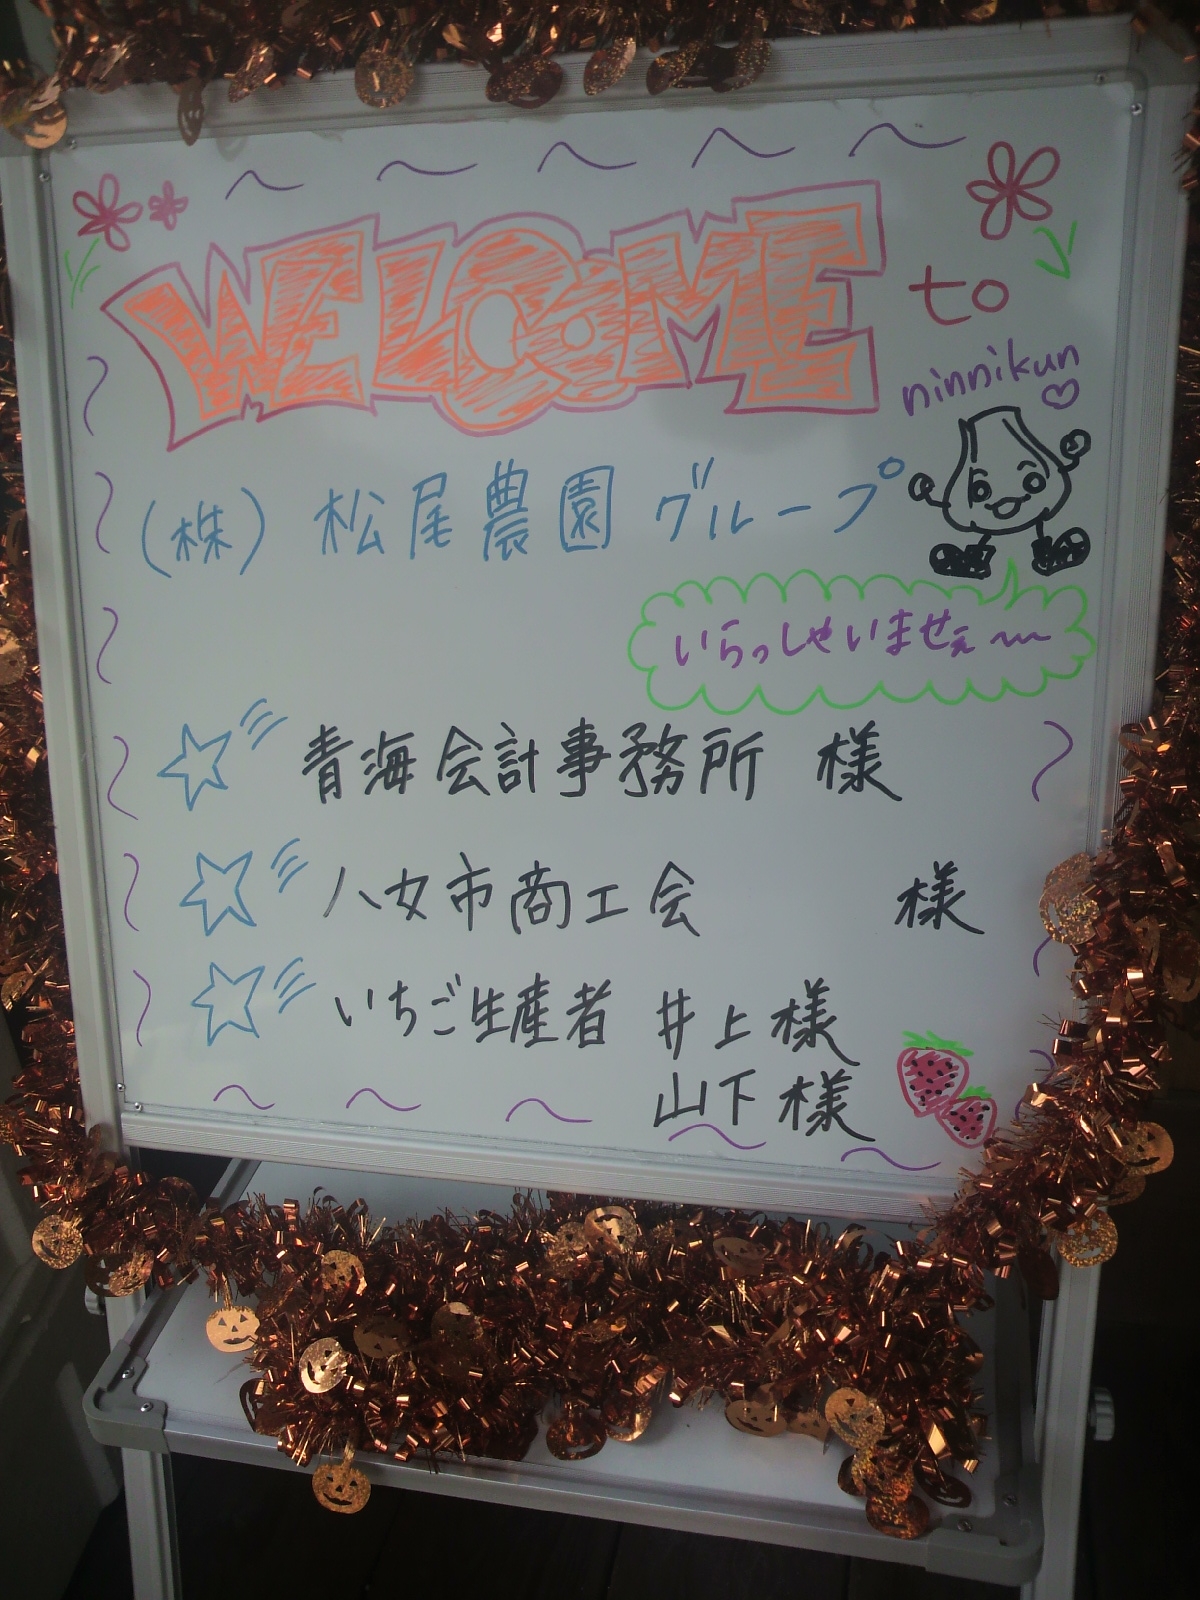 WELCOME to
ninnikun
(株) 松尾農園 グループ
いらっしゃいませぇ～
青海会計事務所 様
八女市商工会 様
いちご生産者 井上様
山下様